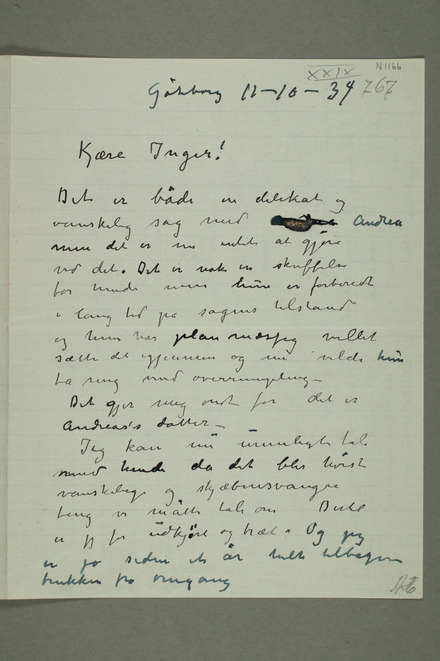 N 1166
XXIX
Göteborg 11-10-34 767
Kjære Inger!
Det er både en delikat og
vanskelig sag med Andrea
men det er nu intet at gjøre
ved det. Det er nok en skuffelse
for hende men hun er forberedt
i lang tid på sagens tilstand
og hun har planmæssig villet
sætte det igjennem og nu vilde hun
ta mig med overrumpling –
Det gjør mig ondt for det er
Andreas's datter –
Jeg kan nu umuligt tale
med hende da det blir høist
vanskelige og skjæbnesvangre
ting vi måtte tale om Dertil
er jeg for udkjørt og træt. Og jeg
er jo siden et år helt tilbage
trukken fra omgang